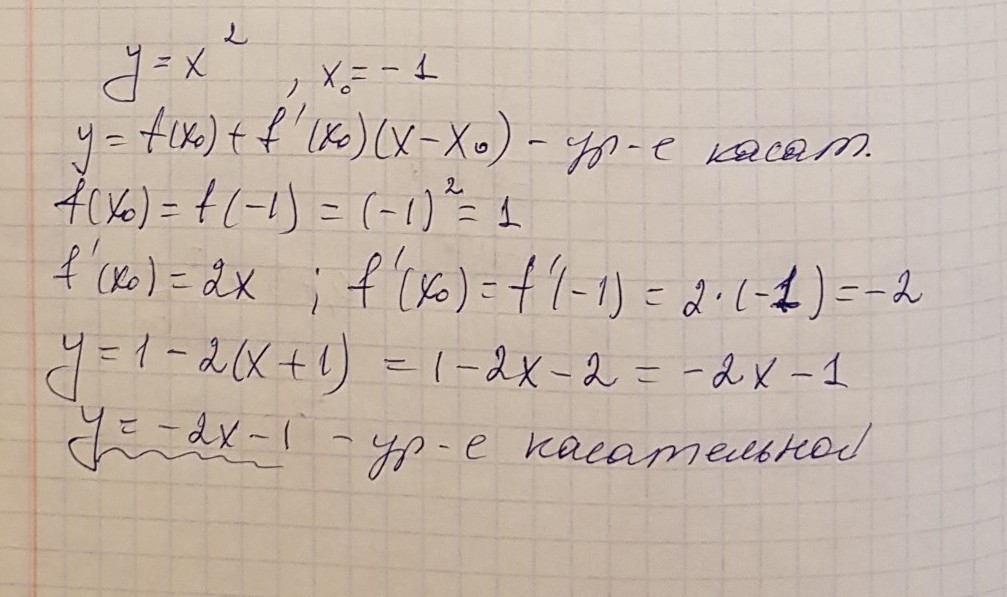 y = x², x₀ = -1
y = f(x₀) + f'(x₀)(x - x₀) - ур-е касат.
f(x₀) = f(-1) = (-1)² = 1
f'(x₀) = 2x ; f'(x₀) = f'(-1) = 2·(-1) = -2
y = 1 - 2(x + 1) = 1 - 2x - 2 = -2x - 1
y = -2x - 1 - ур-е касательной